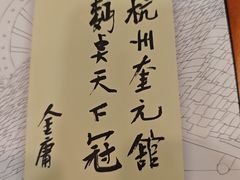 杭州奎元舘
麵點天下冠
金庸